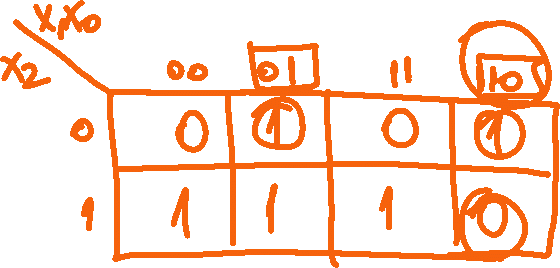 X₁X₀
X₂ 00 01 11 10
0 0 1 0 1
1 1 1 1 0